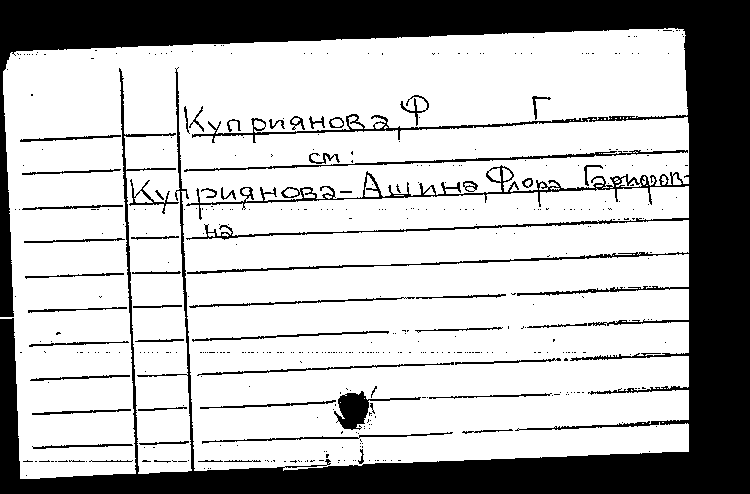 Куприянова, Ф Г
см:
Куприянова-Ашина, Флора Гарифов-
на